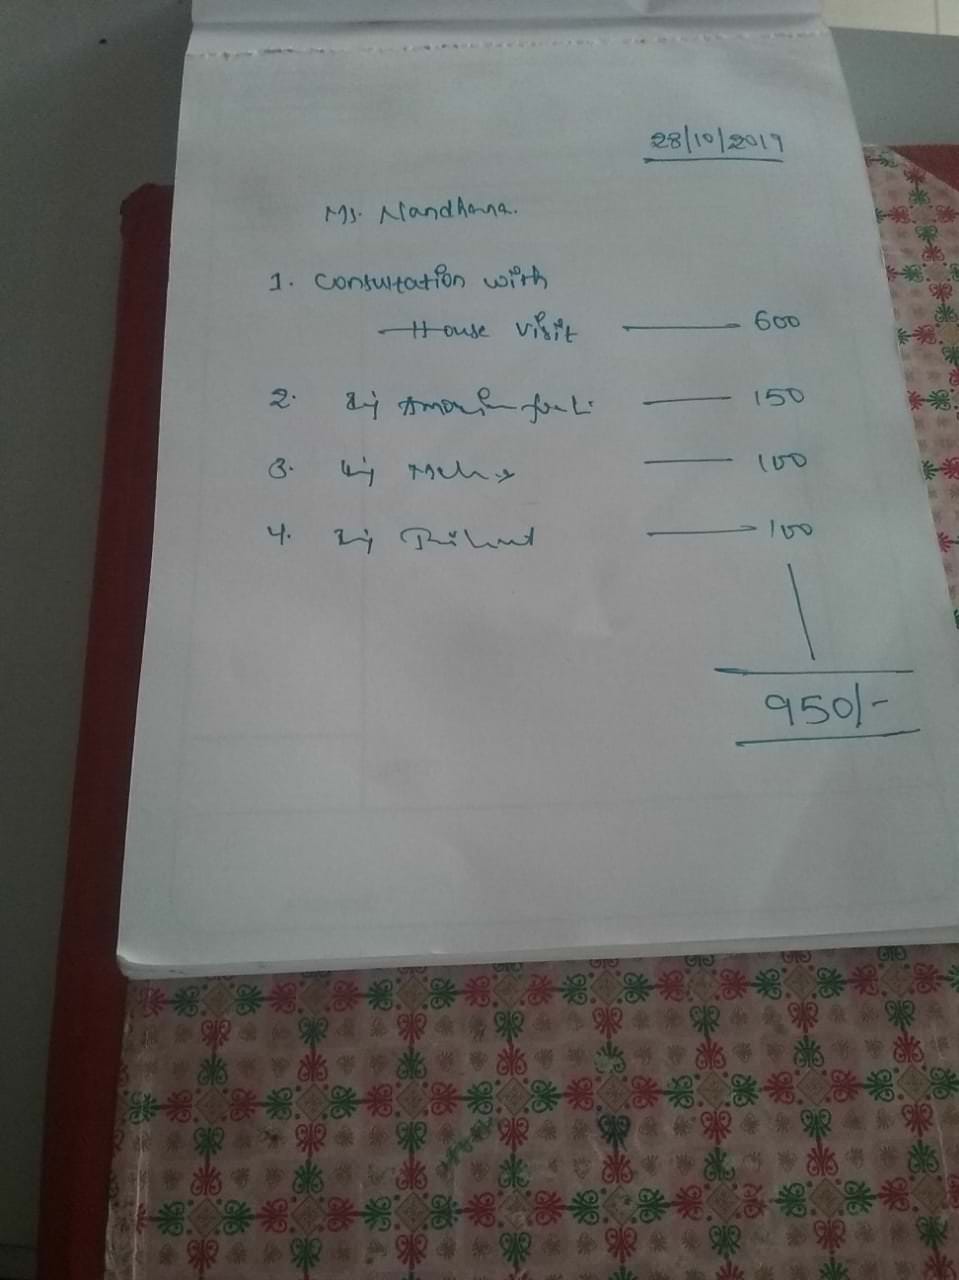 28/10/2019
Ms. Nandhana.
1. Consultation with
House visit — 600
2. Inj — 150
3. Inj — 100
4. Inj — 100
950/-